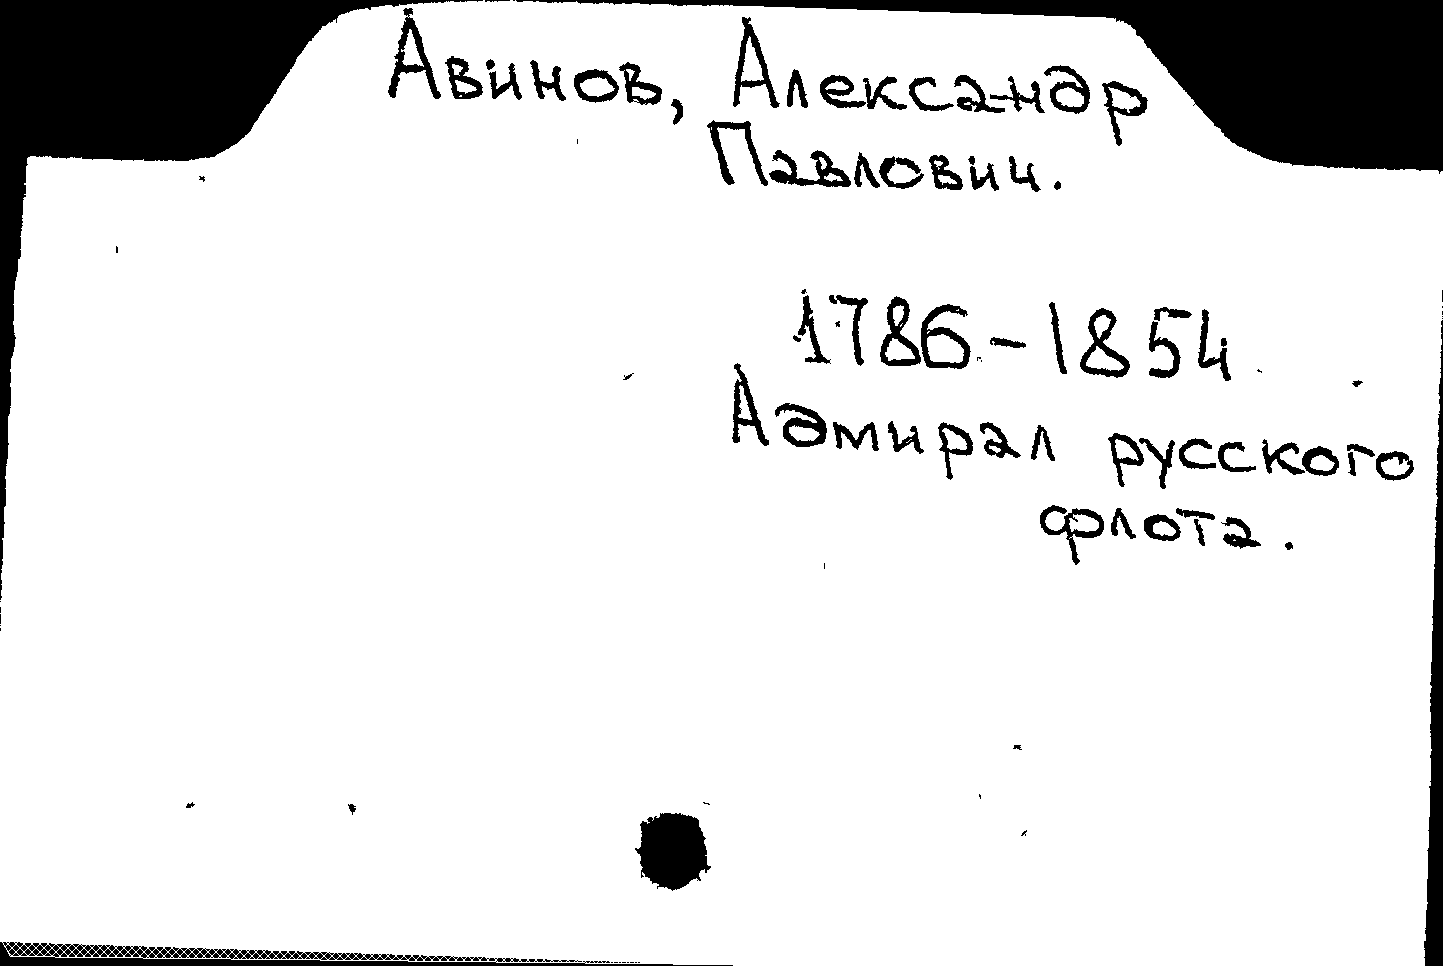 Авинов, Александр
Павлович.
1786-1854
Адмирал русского
флота.